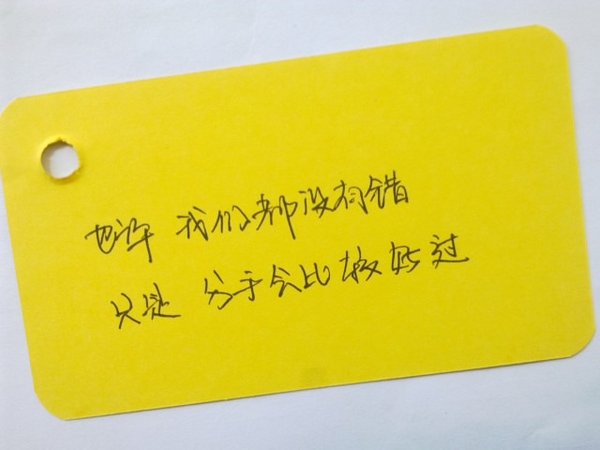 也许 我们都没有错
只是 分手会比较好过